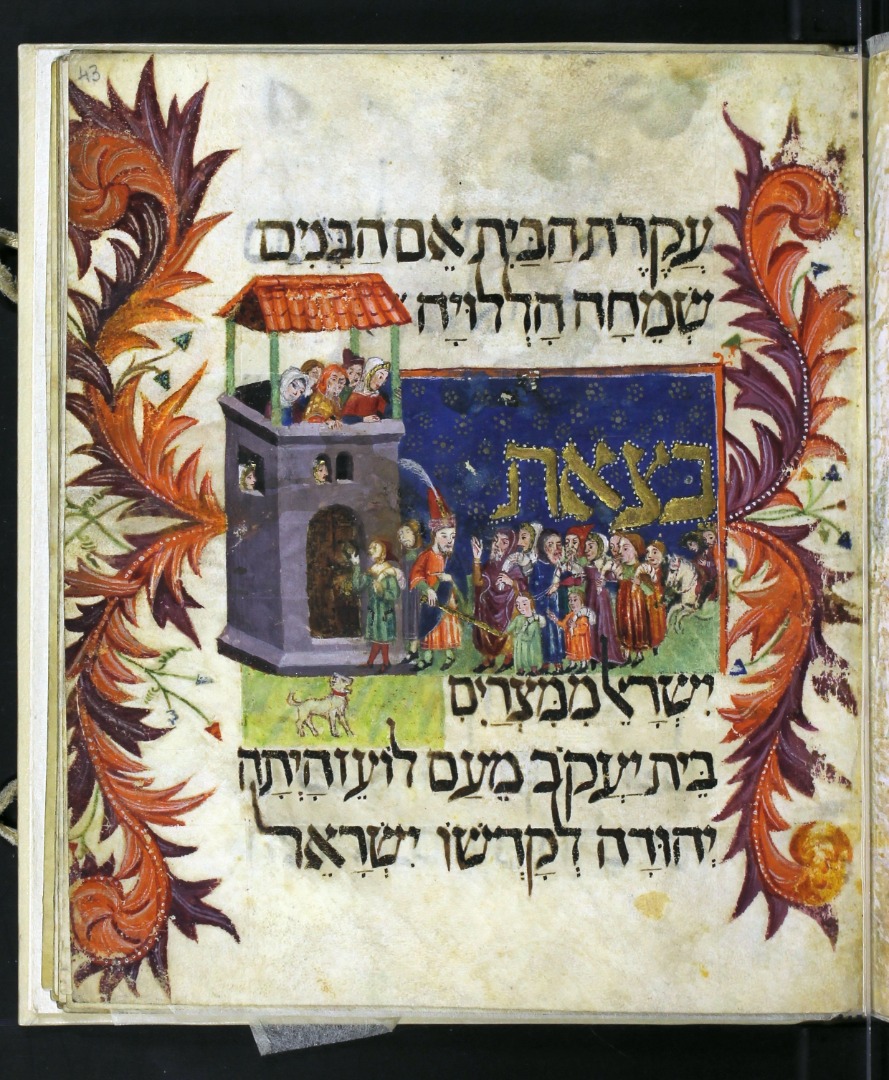 43
עֲקֶרֶת הַבַּיִת אֵם הַבָּנִים
שְׂמֵחָה הַלְלוּיָהּ
בצאת
יִשְׂרָאֵל מִמִּצְרַיִם
בֵּית יַעֲקֹב מֵעַם לוֹעֵז הָיְתָה
יְהוּדָה לְקָדְשׁוֹ יִשְׂרָאֵל